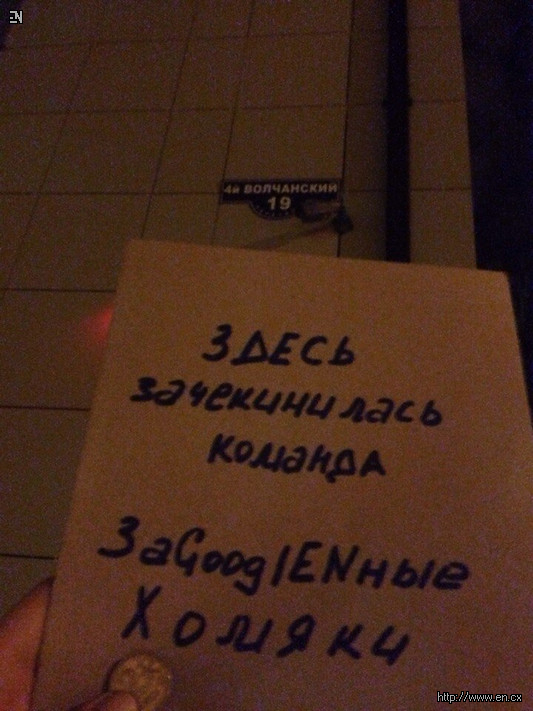 EN
4й ВОЛЧАНСКИЙ
19
ЗДЕСЬ
зачекинилась
команда
ЗаGooglENные
Хомяки
http://www.en.cx